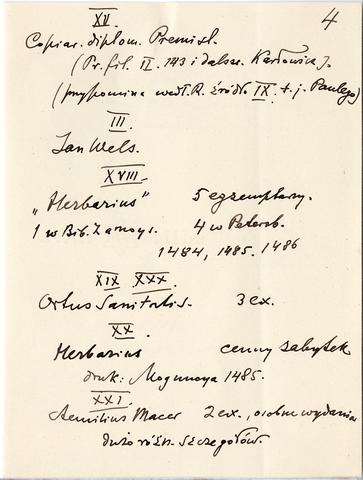 4
XV.
Copiar. diplom. Premisl.
(Pr. fil. II. 143 i dalsze. Karłowicz J.
(przypomina wedł. R. źródło IX. t. j. Paulego)
III.
Jan Wels.
XVIII.
„Herbarius” 5 egzemplarzy.
1 w Bib. Zamoys. 4 w Petersb.
1484, 1485. 1486
XIX XXX.
Ortus Sanitatis. 3 ex.
XX.
Herbarius cenny zabytek
druk: Moguncya 1485.
XXI.
Aemilius Macer 2 ex., osobne wydania
dużo różn. szczegółów.